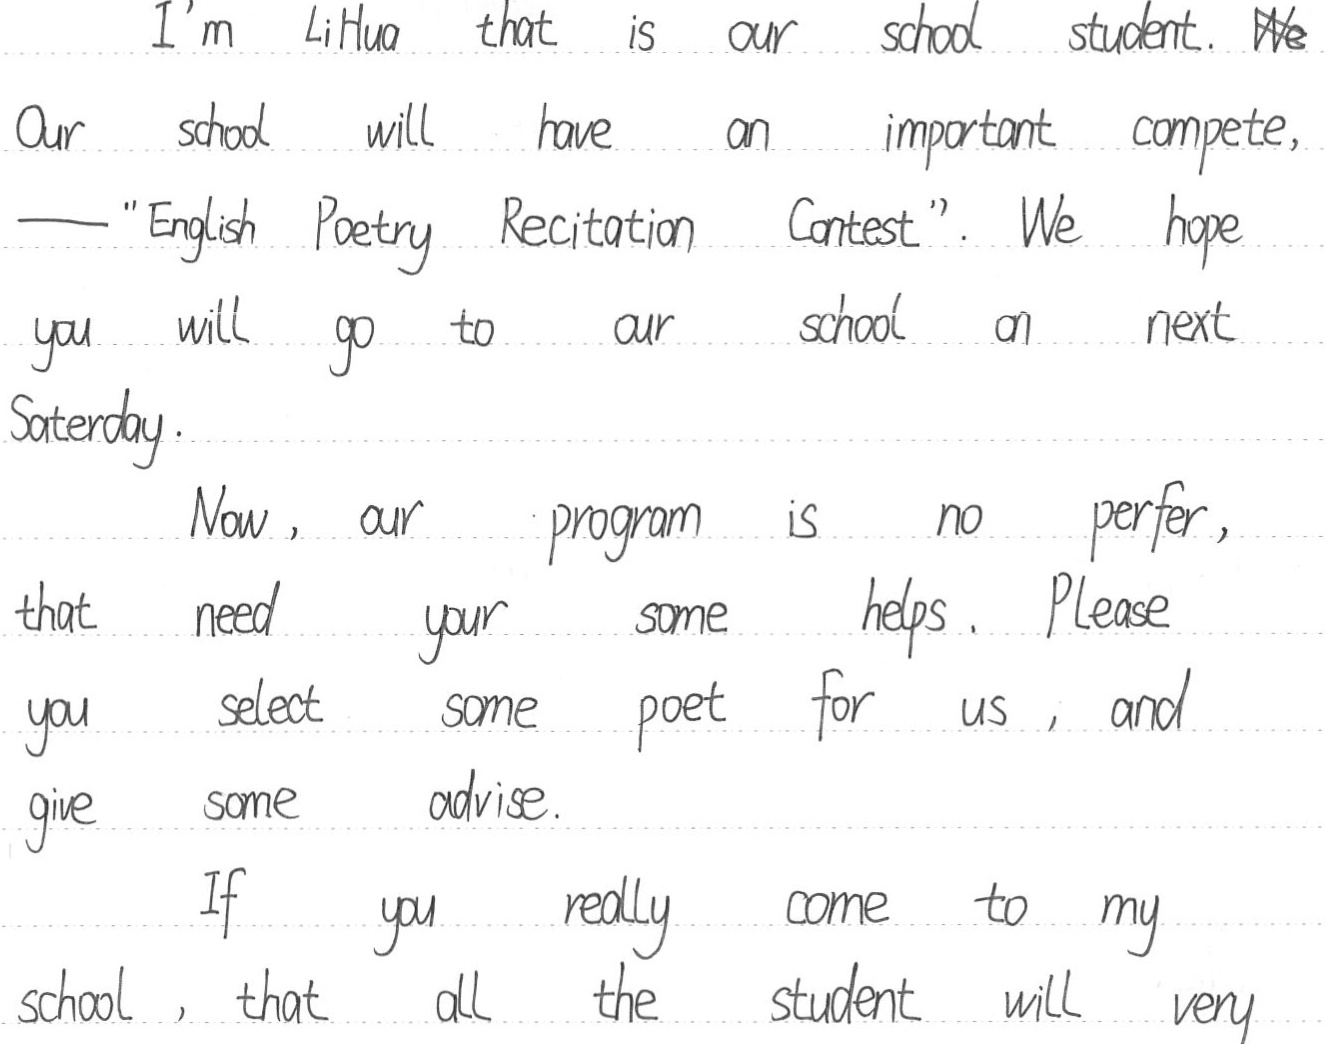 I'm LiHua that is our school student. We
Our school will have an important compete,
—"English Poetry Recitation Contest". We hope
you will go to our school on next
Saterday.
Now, our program is no perfer,
that need your some helps. Please
you select some poet for us, and
give some advise.
If you really come to my
school, that all the student will very